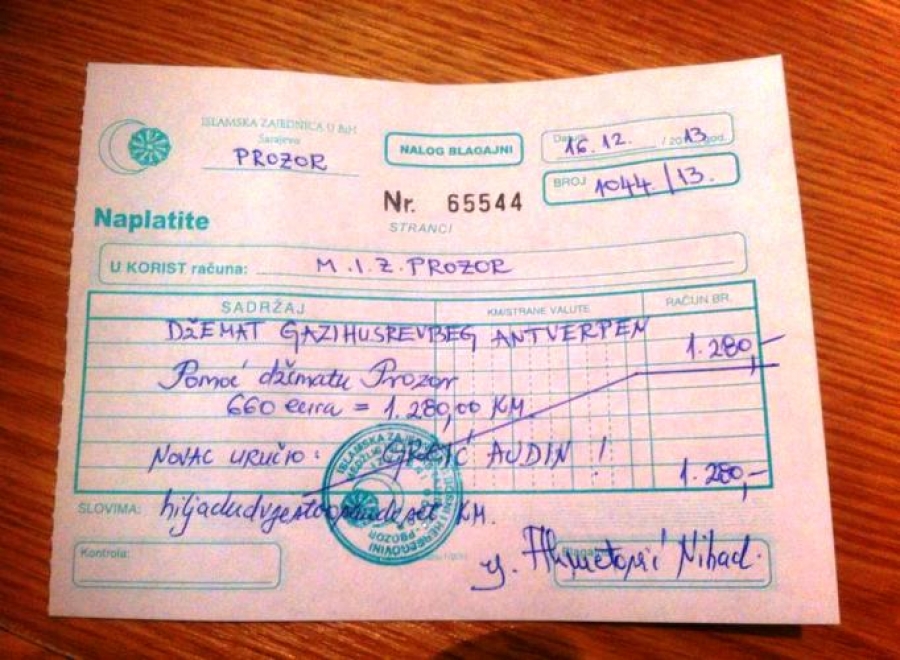 ISLAMSKA ZAJEDNICA U BiH
Sarajevo
PROZOR
NALOG BLAGAJNI
Datum: 16.12. / 2013 god.
BROJ 1044/13.
Nr. 65544
STRANCI
Naplatite
U KORIST računa: M.I.Z. PROZOR
SADRŽAJ KM/STRANE VALUTE RAČUN BR.
DŽEMAT GAZIHUSREVBEG ANTVERPEN
1.280,-
Pomoć džematu Prozor
660 eura = 1.280,00 KM.
NOVAC URUČIO: AUDIN !
1.280,-
SLOVIMA: hiljadudvjestoosamdeset KM.
Kontrola:
Ahmetović Nihad.